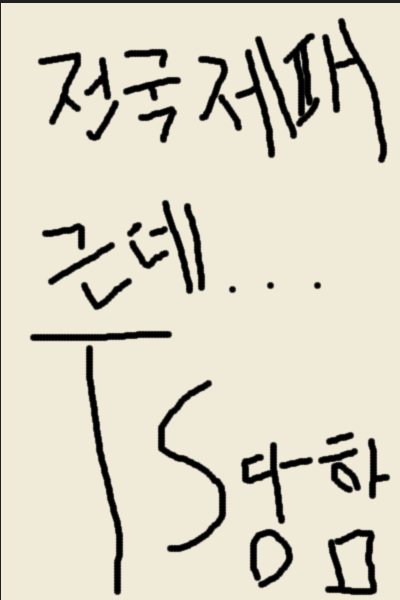 전국제패
근데...
TS당함